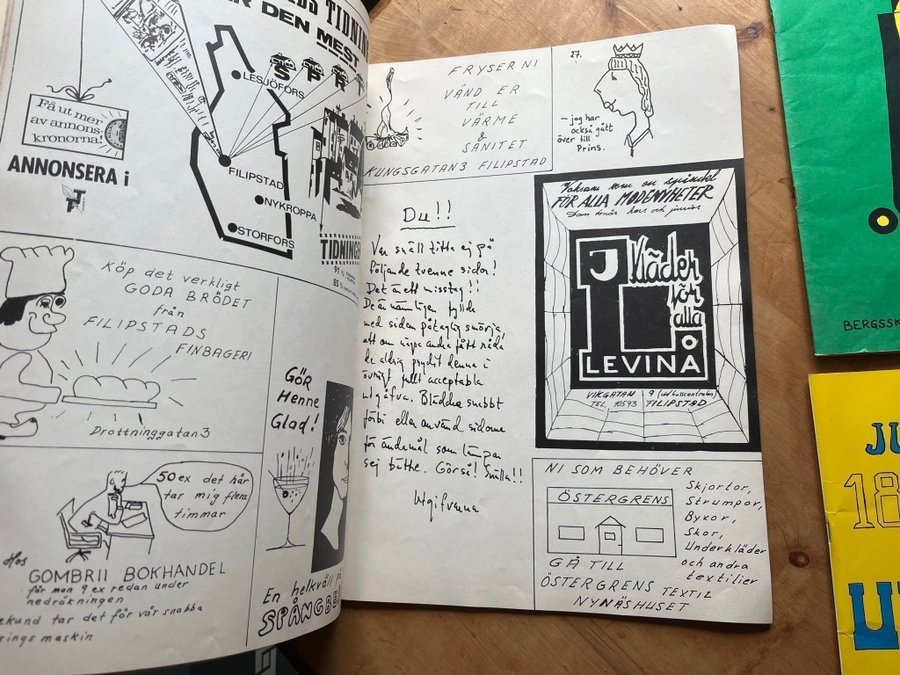 TIDNING
R DEN MEST
SPR
LESJÖFORS
FILIPSTAD
NYKROPPA
STORFORS
Få ut mer
av annons-
kronorna!
ANNONSERA i
TIDNINGE
Köp det verkligt
GODA BRÖDET
från
FILIPSTADS
FINBAGERI
Drottninggatan 3
50 ex det här
tar mig flera
timmar
Hos
GOMBRII BOKHANDEL
får man 9 ex redan under
nedräkningen
ekund tar det för vår snabba
rings maskin
GÖR
Henne
Glad!
En helkväll på
SPÅNGBE
FRYSER NI
VÄND ER
TILL
VÄRME
&
SANITET
KUNGSGATAN 3 FILIPSTAD
27.
– jag har
också gått
över till
Prins.
Du!!
Var snäll titta ej på
följande tvenne sidor!
Det är ett misstag!!
De är nämligen fyllda
med sådan påtaglig smörja,
att om vi
andra fått råda
de aldrig prytt denna i
övrigt fullt acceptabla
utgåva. Bläddra snabbt
förbi eller använd sidorna
för ändamål som lämpar
sej bättre. Gör så! Snälla!!
Utgifvarna
Vaksam som en spindel
FÖR ALLA MODENYHETER
Dam tonår herr och junior
J
Kläder
för
alla
L
LEVINA
VIKGATAN 9 (vid busscentralen)
TEL. 10593 FILIPSTAD
NI SOM BEHÖVER
ÖSTERGRENS
Skjortor,
Strumpor,
Byxor,
Skor,
Underkläder
och andra
textilier
GÅ TILL
ÖSTERGRENS TEXTIL
NYNÄSHUSET
BERGSSK
JU
18
U